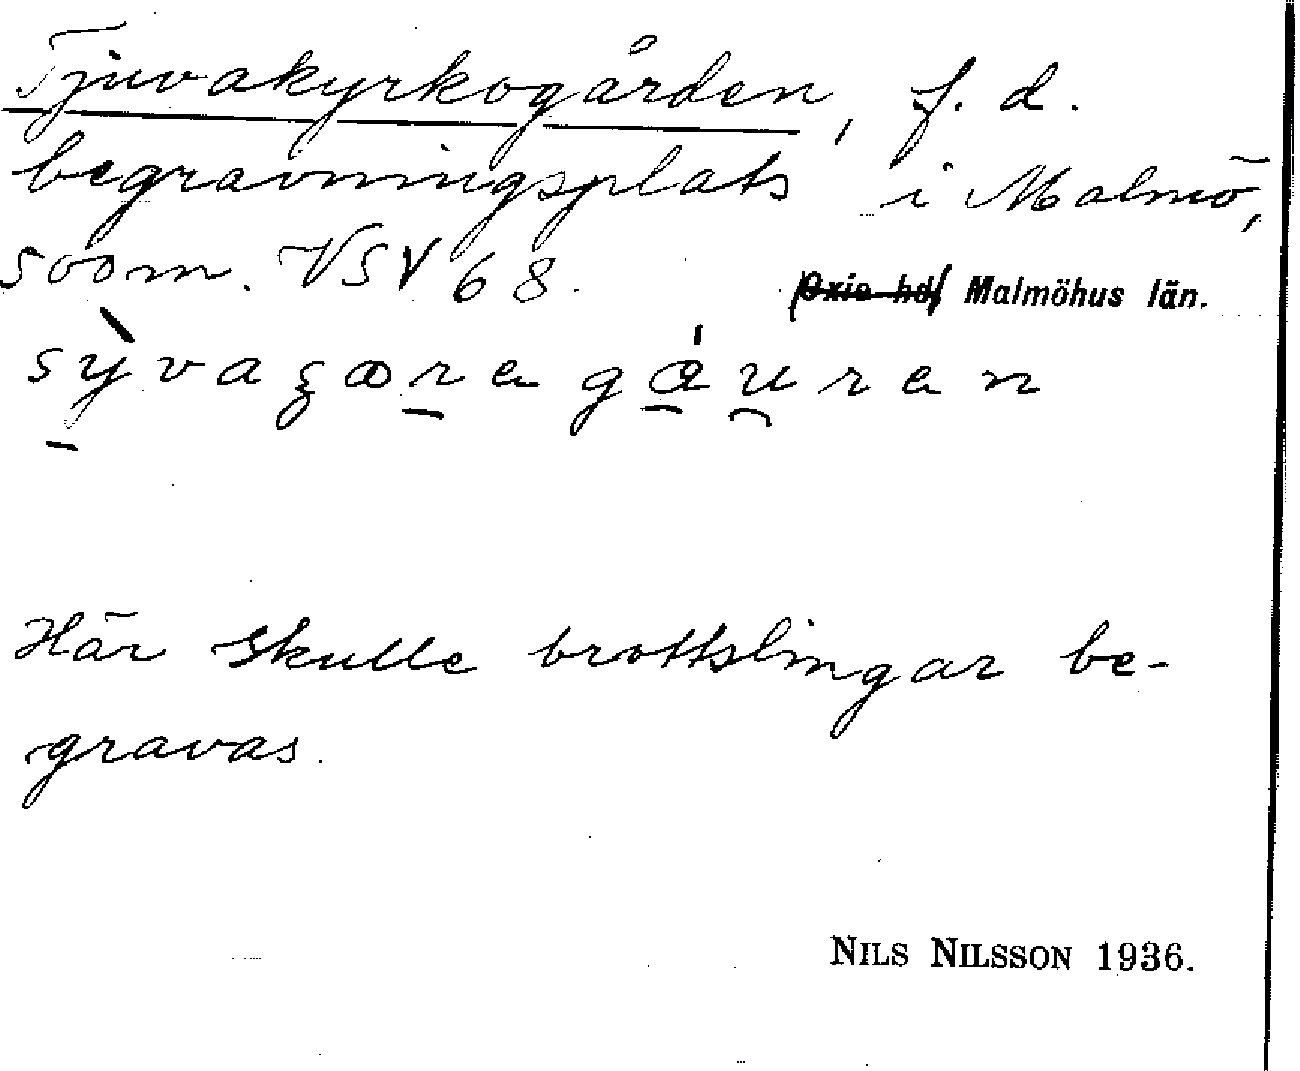 Tjuvakyrkogården, f. d.
begravningsplats i Malmö,
500 m. VSV 68.
Oxie hd, Malmöhus län.
Här skulle brottslingar be-
gravas.
NILS NILSSON 1936.